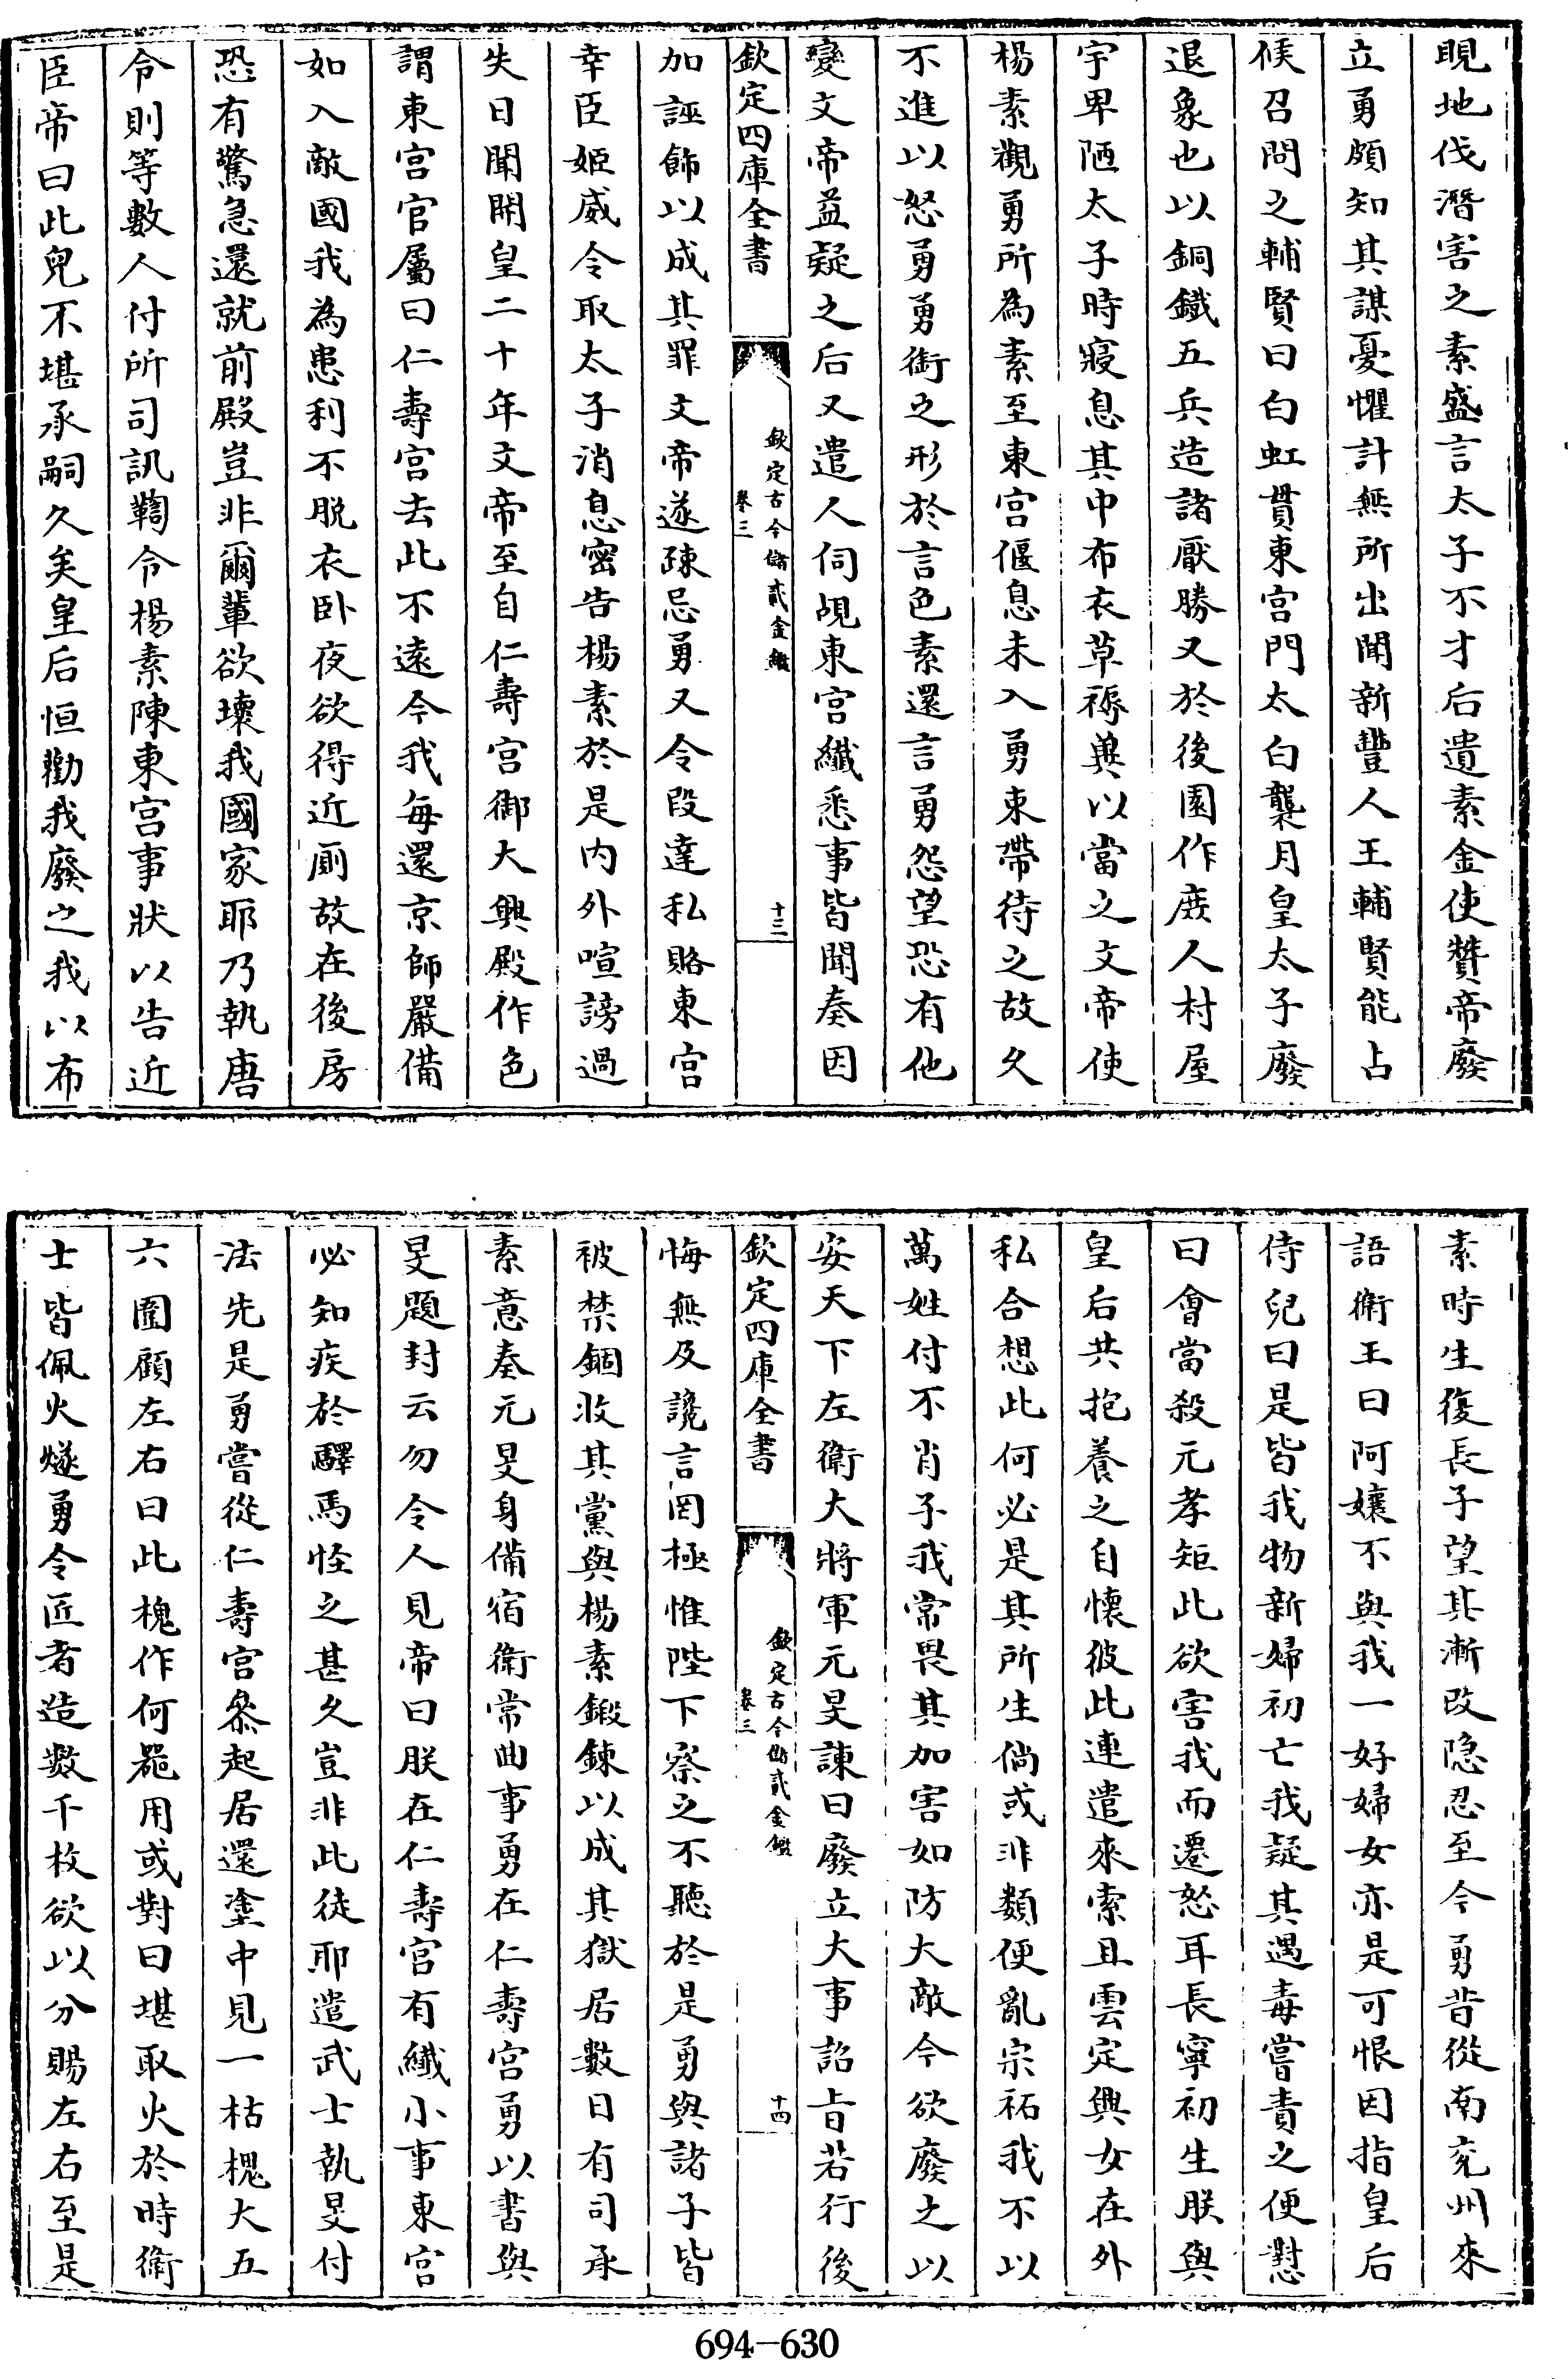 睍地伐潛害之素盛言太子不才后遺素金使贊帝廢
立勇頗知其謀憂懼計無所出聞新豐人王輔賢能占
候召問之輔賢曰白虹貫東宮門太白襲月皇太子廢
退象也以銅鐵五兵造諸厭勝又於後園作庶人村屋
宇卑陋太子時寢息其中布衣草褥兾以當之文帝使
楊素觀勇所為素至東宮偃息未入勇束帶待之故久
不進以怒勇勇銜之形於言色素還言勇怨望恐有他
變文帝益疑之后又遣人伺覘東宮纖悉事皆聞奏因
欽定四庫全書
欽定古今儲貳金鑑
卷三
十三
加誣飾以成其罪文帝遂疎忌勇又令段達私賂東宮
幸臣姬威令取太子消息密告楊素於是内外喧謗過
失日聞開皇二十年文帝至自仁壽宮御大興殿作色
謂東宮官屬曰仁壽宮去此不遠今我每還京師嚴備
如入敵國我為患利不脱衣卧夜欲得近厠故在後房
恐有驚急還就前殿豈非爾輩欲壞我國家耶乃執唐
令則等數人付所司訊鞫令楊素陳東宮事狀以告近
臣帝曰此兒不堪承嗣久矣皇后恒勸我廢之我以布
素時生復長子望其漸改隐忍至今勇昔從南兖州來
語衛王曰阿孃不與我一好婦女亦是可恨因指皇后
侍兒曰是皆我物新婦初亡我疑其遇毒嘗責之便懟
曰會當殺元孝矩此欲害我而遷怒耳長寧初生朕與
皇后共抱養之自懷彼此連遣來索且雲定興女在外
私合想此何必是其所生倘或非類便亂宗祏我不以
萬姓付不肖子我常畏其加害如防大敵今欲廢之以
安天下左衛大將軍元旻諫曰廢立大事詔旨若行後
欽定四庫全書
欽定古今儲貳金鑑
卷三
十四
悔無及讒言罔極惟陛下察之不聽於是勇與諸子皆
被禁錮收其黨與楊素鍛鍊以成其獄居數日有司承
素意奏元旻身備宿衛常曲事勇在仁壽宮勇以書與
旻題封云勿令人見帝曰朕在仁壽宮有纖小事東宮
必知疾於驛馬怪之甚久豈非此徒耶遣武士執旻付
法先是勇嘗從仁壽宮叅起居還塗中見一枯槐大五
六圍顧左右曰此槐作何器用或對曰堪取火於時衛
士皆佩火燧勇令匠者造數千枚欲以分賜左右至是
694-630